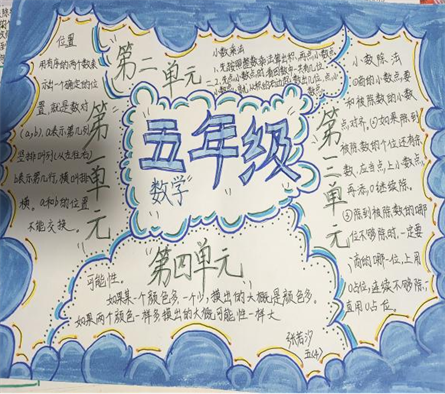 位置
用有序的两个数表
示出一个确定的位
置,就是数对
(a,b),a表示第几列
竖排叫列(从左往右)
b表示第几行,横叫排
横。a和b的位置
不能交换。
第一单元
第二单元
小数乘法
1.先按照整数乘法算出积,再点小数点
2.点小数点时,看因数中一共有几位
小数,就从积的右边起数出几位,点小
数点。
五年级
数学
第三单元
小数除法
①商的小数点,要
和被除数的小数
点对齐。②如果除到
被除数的个位还有余
数,应当点上小数点,
再添0继续除。
③除到被除数的哪
位不够除时,一定要
商的哪一位,上用
0占位,连续不够除,
直用0占位。
第四单元
可能性。
如果某一个颜色多一个少,摸出的大概是颜色多。
如果两个颜色一样多摸出的大概可能性一样大
五(4)